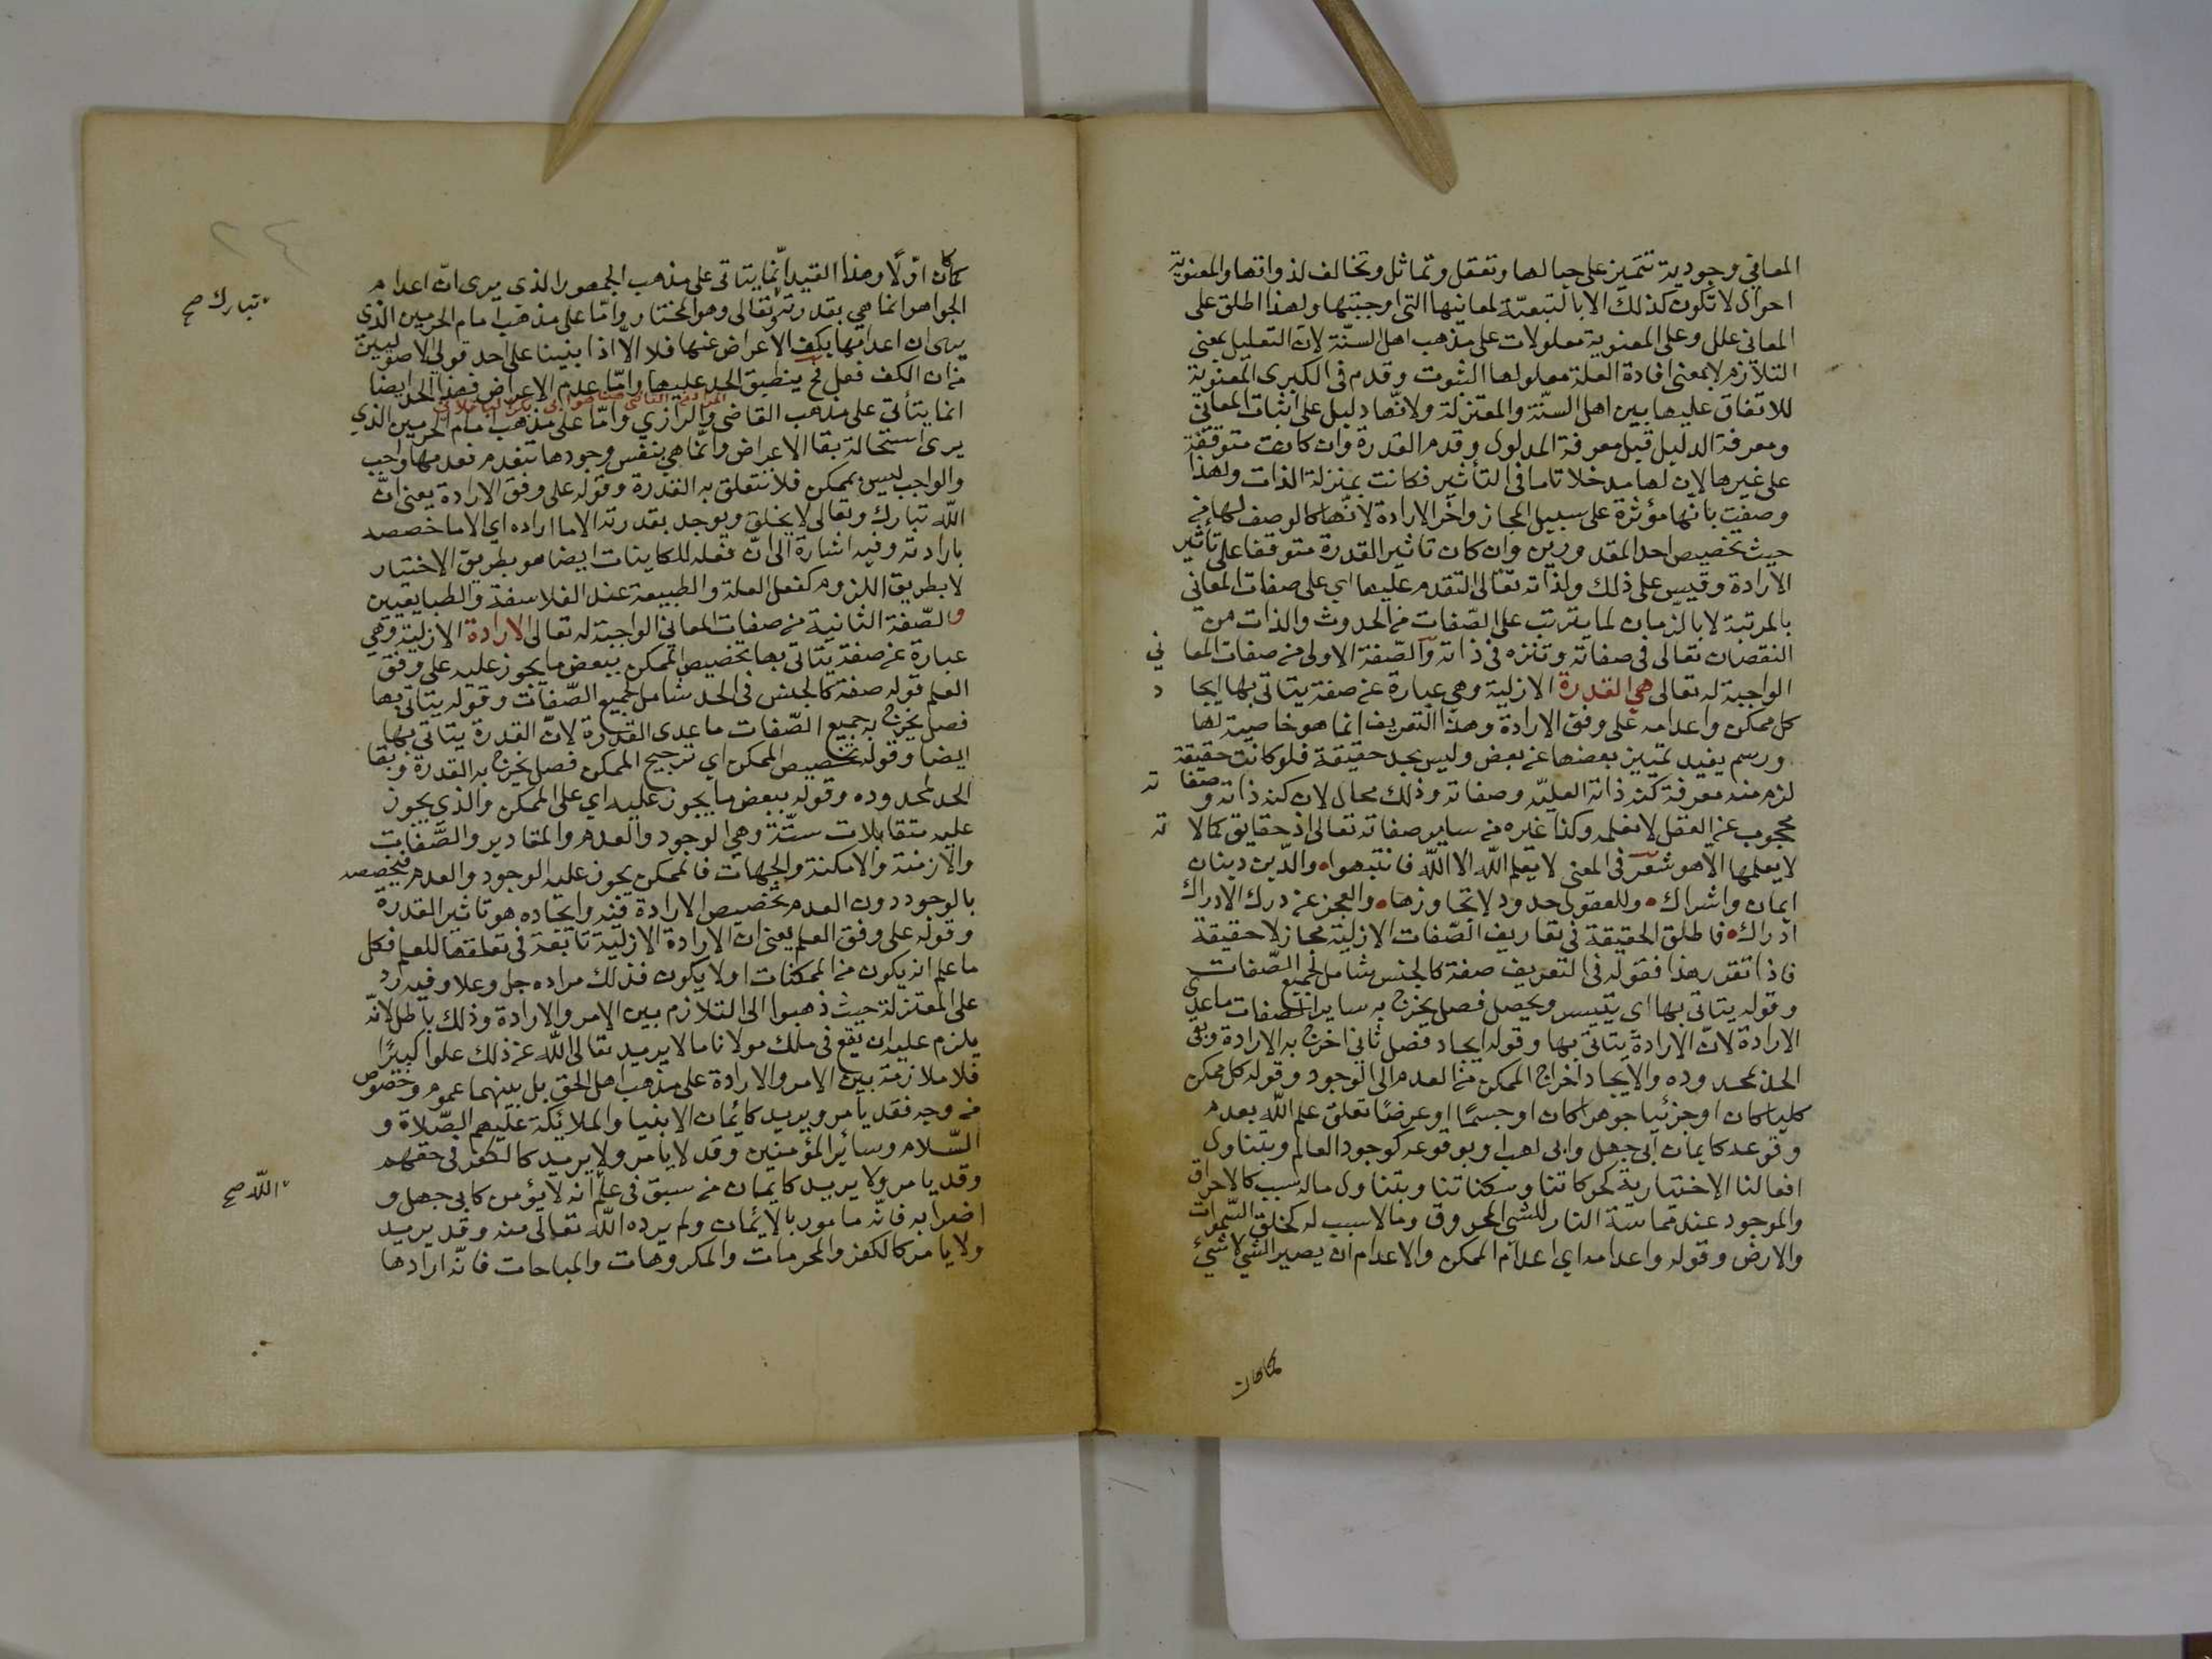 المعاني وجودية تتميز على حيالها وتعقل وتماثل وتخالف لذواتها والمعنوية
احوال لا تكون كذلك الا بالتبعيّة لمعانيها التى اوجبتها ولهذا اطلق على
المعانى علل وعلى المعنوية معلولات على مذهب اهل السنّة لان التعليل بمعنى
التلازم لا بمعنى افادة العلة معلولها الثبوت وقدم فى الكبرى المعنوية
للاتفاق عليها بين اهل السنّة والمعتزلة ولانّها دليل على اثبات المعاني
ومعرفة الدليل قبل معرفة المدلول وقدم القدرة وان كانت متوقفة
على غيرها لان لها مدخلا تاما فى التأثير فكانت بمنزلة الذات ولهذا
وصفت بانها مؤثرة على سبيل المجاز واخر الارادة لانّها كالوصف لها من
حيث تخصيص احد المقدورين وان كان تاثير القدرة متوقفا على تأثير
الارادة وقيس على ذلك ولذاته تعّالى التقدم عليها اي على صفات المعانى
بالمرتبة لا بالزمان لما يترتب على الصّفات من الحدوث والذات من
النقصان تعالى فى صفاته وتنزه فى ذاته والصّفة الاولى من صفات المعاني
الواجبة له تعالى هي القدرة الازلية وهي عبارة عن صفة يتاتى بها ايجاد
كل ممكن واعدامه على وفق الارادة وهذا التعريف انما هو خاصية لها
ورسم يفيد تمييز بعضها عن بعض وليس بحد حقيقة فلو كانت حقيقة
لزم منه معرفة كنه ذاته العليّه وصفاته وذلك محال لان كنه ذاته وصفاته
محجوب عن العقل لا نعلمه وكذا غيره من ساير صفاته تعالى اذ حقايق كمالاته
لا يعلمها الا هو شعر فى المعنى لا يعلم الله الا الله فانتبهوا والدّين دينان
ايمان واشراك وللعقول حدود لا تجاوزها والعجز عن درك الادراك
ادراك فاطلق الحقيقة فى تعاريف الصّفات الازلية مجاز لا حقيقة
فاذا تقرر هذا فقوله فى التعريف صفة كالجنس شامل لجميع الصّفات
وقوله يتاتى بها اى يتيسر ويحصل فصل يخرج به ساير الصفات ما عدى
الارادة لانّ الارادة يتاتى بها وقوله ايجاد فصل ثانى اخرج به الارادة وبقى
الحد لمحدوده والايجاد اخراج الممكن من العدم الى الوجود وقوله كل ممكن
كليا كان او جزئيا جوهرا كان او جسمًا او عرضًا تعلق علم الله بعدم
وقوعه كايمان ابى جهل وابى لهب او بوقوعه كوجود العالم ويتناول
افعالنا الاختيارية كحركاتنا وسكناتنا ويتناول ماله سبب كالاحراق
والموجود عند مماسة النار للشي المحروق وما لا سبب له كخلق السّموات
والارض وقوله واعدامه اي اعدام الممكن والاعدام ان يصير الشي لا شيئ
كما كان
٢٤
كما كان اوّلًا وهذا القيد انّما يتاتى على مذهب الجمهور الذي يرى انّ اعدام
الجواهر انما هي بقدرته وتعالى وهو المختار وامّا على مذهب امام الحرمين الذي
تبارك صح
يرى ان اعدامها بكف الاعراض عنها فلا الا اذا بنينا على احد قولي الاصوليين
من ان الكف فعل فح ينطبق الحد عليها وامّا عدم الاعراض فهذا الحد ايضا
انما يتأتى على مذهب القاضى والرازي وامّا على مذهب امام الحرمين الذي
يرى استحالة بقا الاعراض وانّما هي بنفس وجودها تنعدم فعدمها واجب
والواجب ليس بممكن فلا تتعلق به القدرة وقوله على وفق الارادة يعنى انّ
اللّه تبارك وتعالى لا يخلق ويوجد بقدرته الا ما اراده اي الا ما خصصه
بارادته وفيه اشارة الى انّ فعله للكاينات ايضا هو بطريق الاختيار
لا بطريق اللزوم كفعل العلة والطبيعة عند الفلاسفة والطبايعيين
والصّفة الثانية من صفات المعاني الواجبة له تعالى الارادة الازلية وهي
عبارة عن صفة يتاتى بها تخصيص الممكن ببعض ما يجوز عليه على وفق
العلم قوله صفة كالجنس فى الحد شامل لجميع الصّفات وقوله يتاتى بها
فصل يخرج به جميع الصّفات ما عدى القدرة لانّ القدرة يتاتى بها
ايضا وقوله تخصيص الممكن اي ترجيح الممكن فصل يخرج به القدرة وبقا
الحد لمحدوده وقوله ببعض ما يجوز عليه اي على الممكن والذي يجوز
عليه متقابلات ستّة وهي الوجود والعدم والمقادير والصّفات
والازمنة والامكنة والجهات فالممكن يجوز عليه الوجود والعدم فيخصصه
بالوجود دون العدم تخصيص الارادة فيه وايجاده هو تاثير القدرة
وقوله على وفق العلم يعنى ان الارادة الازلية تابعة فى تعلقها للعلم فكل
ما علم انه يكون من الممكنات او لا يكون فذلك مراده جل وعلا وفيه رد
على المعتزلة حيث ذهبوا الى التلازم بين الامر والارادة وذلك باطل لانّه
يلزم عليه ان يقع فى ملك مولانا ما لا يريد تعالى اللّه عن ذلك علوا كبيرًا
فلا ملازمة بين الامر والارادة على مذهب اهل الحق بل بينهما عموم وخصوص
من وجه فقد يامر ويريد كايمان الانبيا والملائكة عليهم الصّلاة و
السّلام وسائر المؤمنين وقد لا يامر ولا يريد كالكفر فى حقهم
وقد يامر ولا يريد كايمان من سبق فى علم انه لا يؤمن كابى جهل و
اللّه صح
اضرابه فانّه مامور بالايمان ولم يرده اللّه تعالى منه وقد يريد
ولا يامر كالكفر والمحرمات والمكروهات والمباحات فانّه ارادها